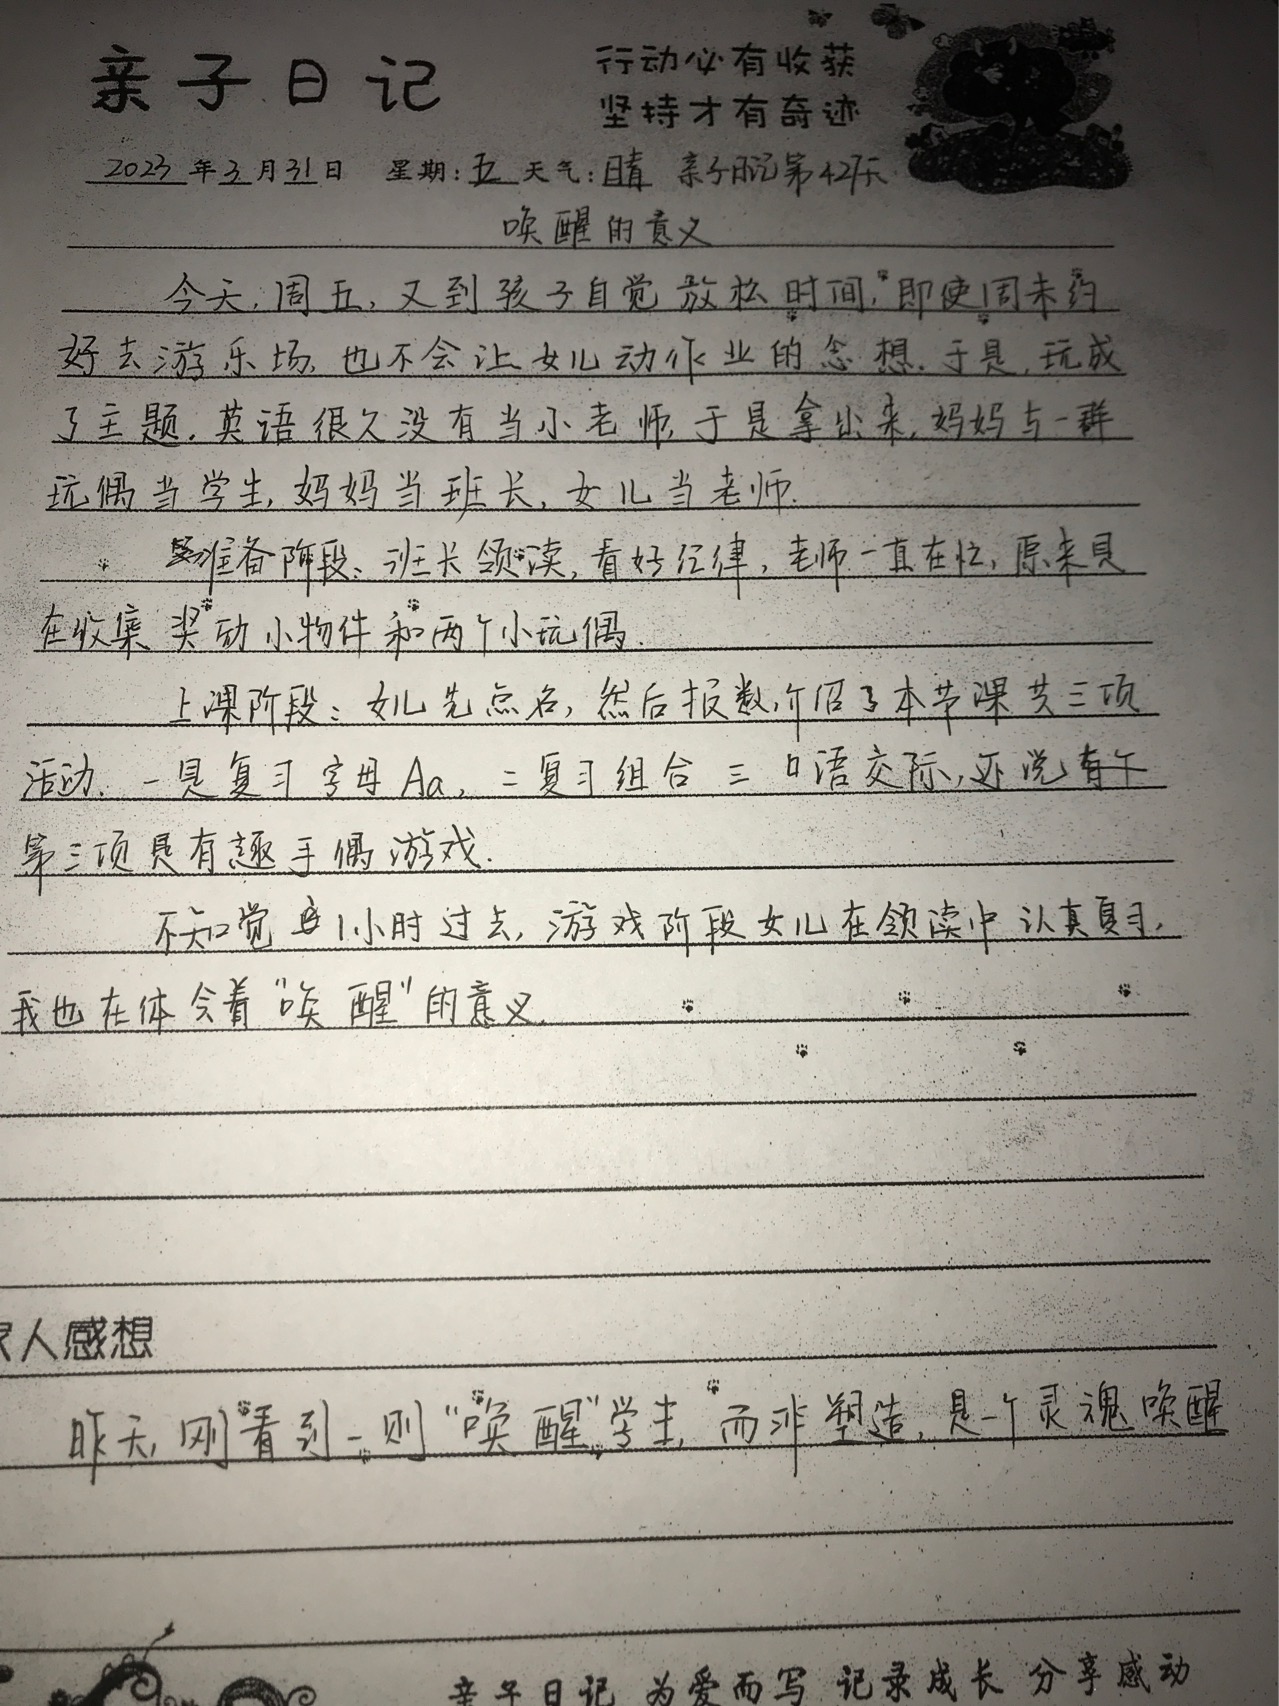 亲子日记
行动必有收获
坚持才有奇迹
2023年3月31日 星期:五 天气:晴 亲子日记第427天
唤醒的意义
今天,周五,又到孩子自觉放松时间,即使周末约
好去游乐场,也不会让女儿动作业的念想.于是,玩成
了主题.英语很久没有当小老师,于是拿出来,妈妈与一群
玩偶当学生,妈妈当班长,女儿当老师.
准备阶段:班长领读,看好纪律,老师一直在忙,原来是
在收集奖励小物件和两个小玩偶.
上课阶段:女儿先点名,然后报数,介绍了本节课共三项
活动.一是复习字母Aa,二复习组合 三 口语交际,还说有个
第三项是有趣手偶游戏.
不知觉 1小时过去,游戏阶段女儿在领读中认真复习,
我也在体会着“唤醒”的意义.
人感想
昨天,刚看到一则“唤醒”学生,而非塑造,是一个灵魂唤醒
亲子日记 为爱而写 记录成长 分享感动